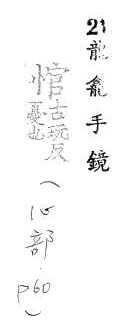 21 龍龕手鏡
悺古玩反憂也
(心部 p60)